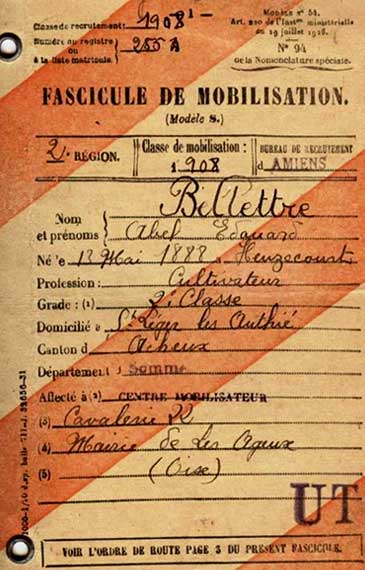 Classe de recrutement: 1908
Modèle nº 54.
Numéro au registre
ou
à la liste matricule. 255 A
Art. 210 de l'Inst. ministérielle
du 19 juillet 1928.
Nº 94
de la Nomenclature spéciale.
FASCICULE DE MOBILISATION.
(Modèle S.)
2e RÉGION.
Classe de mobilisation:
1908
BUREAU DE RECRUTEMENT
d AMIENS
Nom
et prénoms
Bellettre
Abel Edouard
Né le 13 Mai 1888 Heuzecourt
Profession: Cultivateur
Grade: (1) 2e Classe
Domicilié à St Léger les Authie
Canton d Acheux
Département d Somme
Affecté à (2) CENTRE MOBILISATEUR
(3) Cavalerie 22
(4) Mairie de Les Ageux
(5) (Oise)
UT
VOIR L'ORDRE DE ROUTE PAGE 3 DU PRÉSENT FASCICULE.